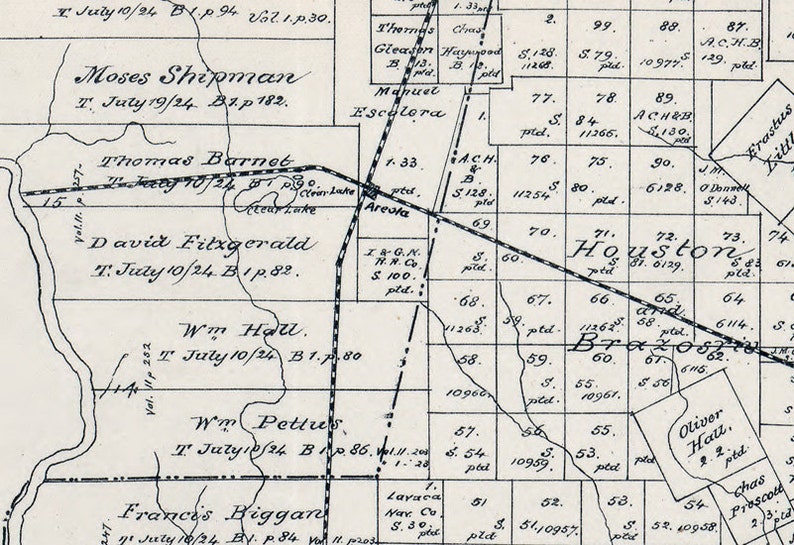 T. July 10/24 B 1. p. 94 Vol. 1. p. 30.
Moses Shipman
T. July 19/24 B 1. p 182.
Thomas Barnet
T. July 10/24 B 1 p 90.
Clear Lake
Clear Lake
15
Vol. 11. p 257-
David Fitzgerald
T. July 10/24 B 1 p. 82.
Wm Hall.
T July 10/24 B 1. p. 80
14
Vol. 11 p 252
Wm Pettus
T July 10/24 B 1 p. 86.
Vol. 11. 203
1 - 28
Francis Biggan
T. July 10/24 B 1. p. 84
Vol. 11. p 203
247.
1. 33 ptd
Thomas
Gleason
B 13.
ptd.
Chas
Haywood
B 12
ptd.
Manuel
Escalera
1.33
ptd
Areola
I & G. N.
R. R. Co
S. 100.
ptd.
1.
A. C. H.
& B
S. 128.
ptd
2.
S. 128.
11268.
99.
S. 79.
ptd.
88.
10977. S.
87.
A. C. H. B.
129. ptd.
77.
ptd.
78.
S. 84
11266.
89.
A C H & B.
S. 130.
ptd
Erastus
Littl
76
11254
75
S. 80.
ptd.
90.
6128.
J. M.
O'Donnell
S. 143.
69
S. 60
ptd.
70.
71.
S.
ptd.
72.
81. 6129.
73.
S. 83
ptd
74
61
Houston
and
Brazoria
68.
11263. S.
67.
59.
ptd
66
11262
65.
S. 58
ptd.
64
6114.
58.
10966.
59.
S.
ptd.
60.
55.
10961.
61.
S. 56
62.
6115.
57.
S. 54
ptd
56.
10959.
55.
S. 53.
ptd.
ptd
Oliver
Hall.
2. 2. ptd.
Chas
Prescott
2. 3. ptd
1.
Lavaca
Nav. Co.
S. 30.
ptd.
51
S.
ptd
52.
51. 10957.
53.
S.
ptd
54
52. 10958.